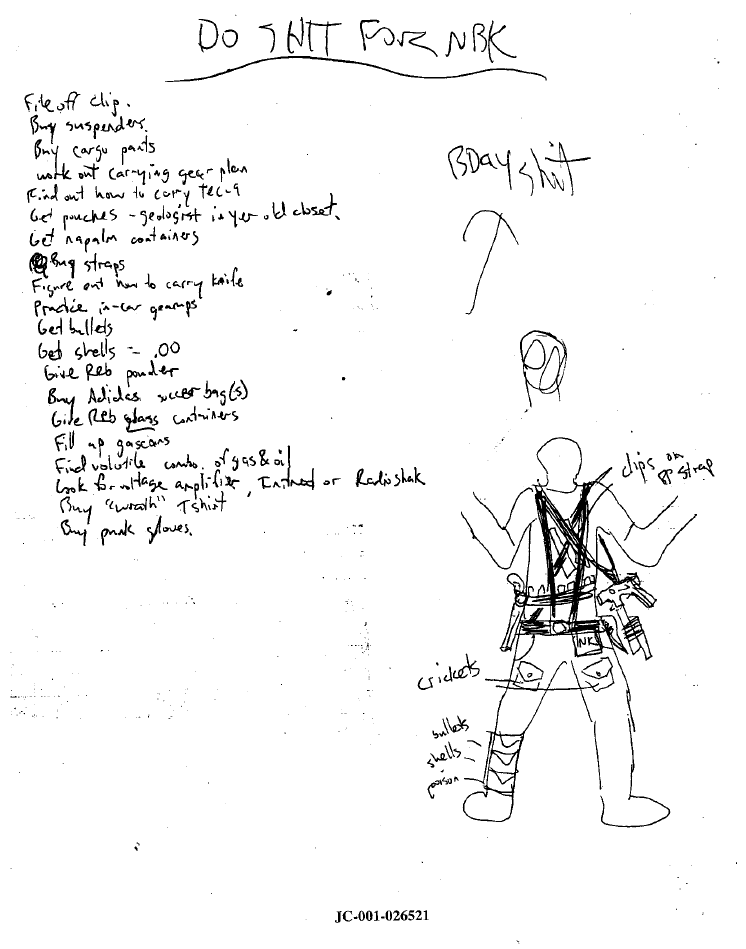 DO SHIT FOR NBK
File off clip.
Buy suspenders.
Buy cargo pants
work out carrying gear plan
Find out how to carry TEC-9
Get pouches - geologist in yer old closet.
Get napalm containers
Buy straps
Figure out how to carry knife
Practice in-car gearups
Get bullets
Get shells - .00
Give Reb powder
Buy Adidas soccer bag(s)
Give Reb glass containers
Fill up gascans
Find volatile combo. of gas & oil
Look for voltage amplifier, Intned or Radioshak
Buy "wrath" Tshirt
Buy punk gloves.
BDay shit
clips on strap
NK
crickets
bullets
shells
poison
JC-001-026521